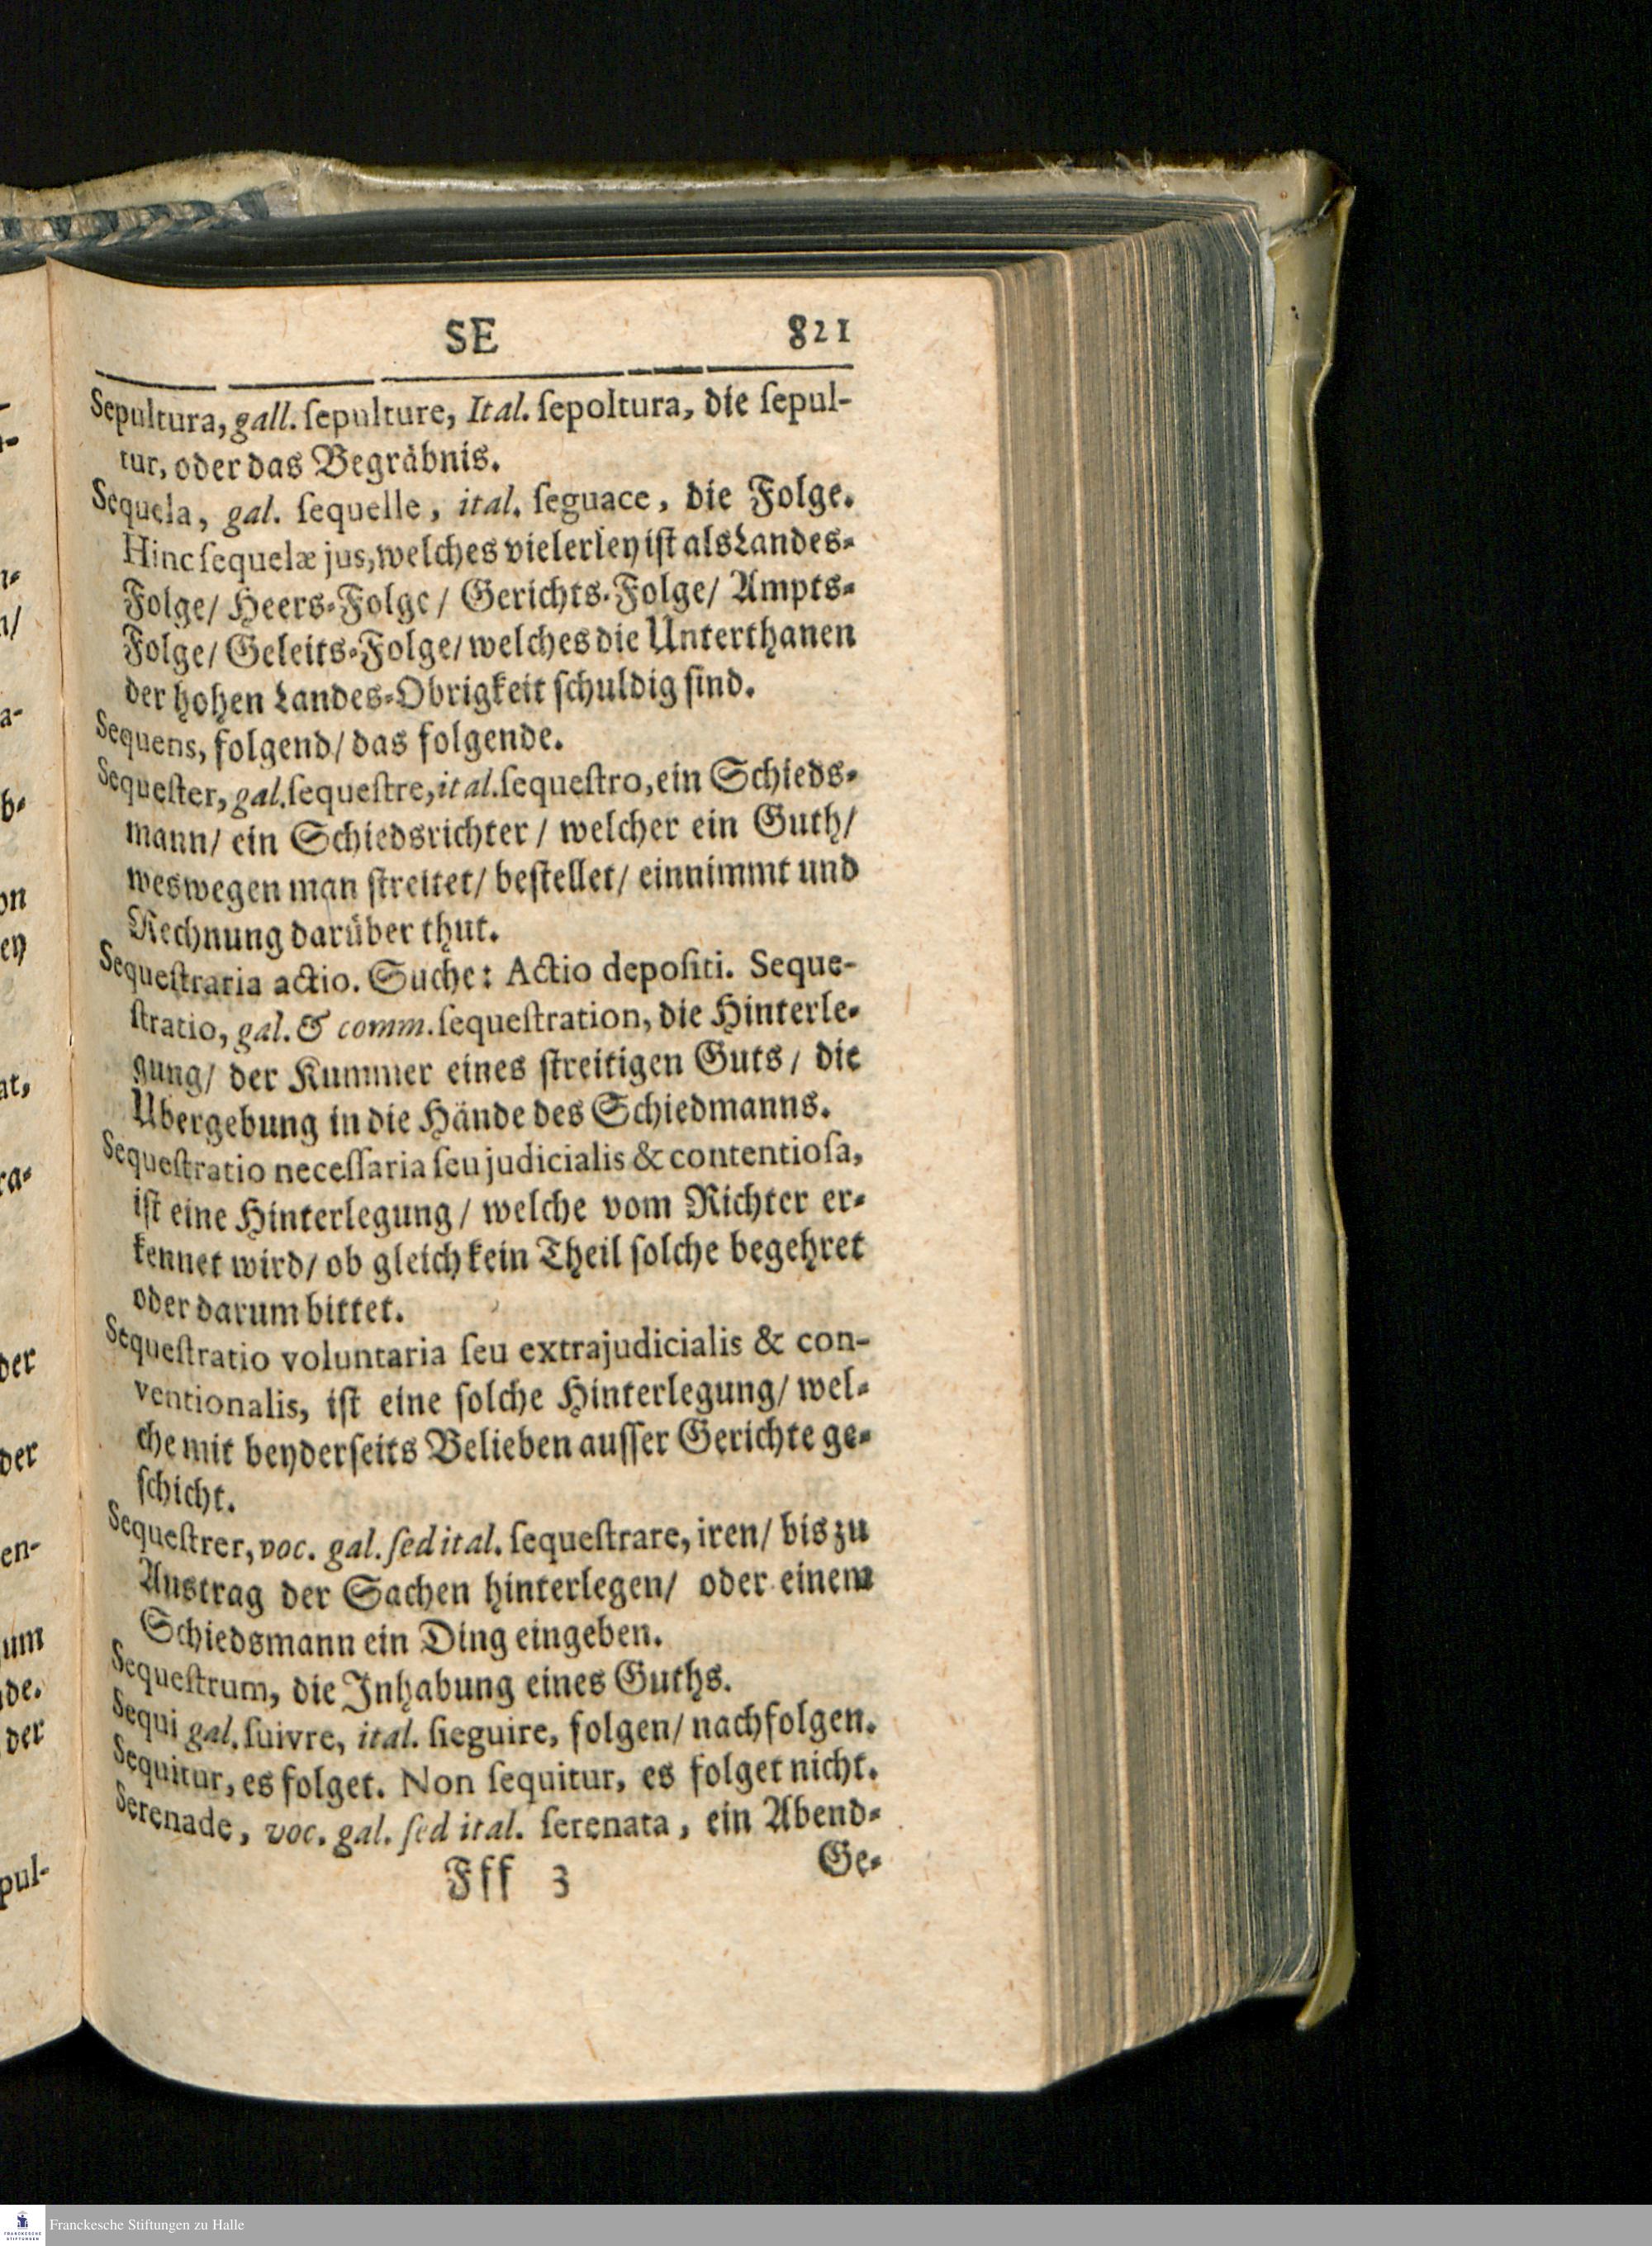 SE 821
Sepultura, gall. ſepulture, Ital. ſepoltura, die ſepul-
tur, oder das Begräbnis.
Sequela, gal. ſequelle, ital. ſeguace, die Folge.
Hinc ſequelæ jus, welches vielerley iſt als Landes-
Folge/ Heers-Folge/ Gerichts-Folge/ Ampts-
Folge/ Geleits-Folge/ welches die Unterthanen
der hohen Landes-Obrigkeit ſchuldig ſind.
Sequens, folgend/ das folgende.
Sequeſter, gal. ſequeſtre, ital. ſequeſtro, ein Schieds-
mann/ ein Schiedsrichter/ welcher ein Guth/
weswegen man ſtreitet/ beſtellet/ einnimmt und
Rechnung darüber thut.
Sequeſtraria actio. Suche: Actio depoſiti. Seque-
ſtratio, gal. & comm. ſequeſtration, die Hinterle-
gung/ der Kummer eines ſtreitigen Guts/ die
Ubergebung in die Hände des Schiedmanns.
Sequeſtratio neceſſaria ſeu judicialis & contentioſa,
iſt eine Hinterlegung/ welche vom Richter er-
kennet wird/ ob gleich kein Theil ſolche begehret
oder darum bittet.
Sequeſtratio voluntaria ſeu extrajudicialis & con-
ventionalis, iſt eine ſolche Hinterlegung/ wel-
che mit beyderſeits Belieben auſſer Gerichte ge-
ſchicht.
Sequeſtrer, voc. gal. ſed ital. ſequeſtrare, iren/ bis zu
Austrag der Sachen hinterlegen/ oder einem
Schiedsmann ein Ding eingeben.
Sequeſtrum, die Inhabung eines Guths.
Sequi gal. ſuivre, ital. ſieguire, folgen/ nachfolgen.
Sequitur, es folget. Non ſequitur, es folget nicht.
Serenade, voc. gal. ſed ital. ſerenata, ein Abend-
Fff 3 Ge-
Franckesche Stiftungen zu Halle